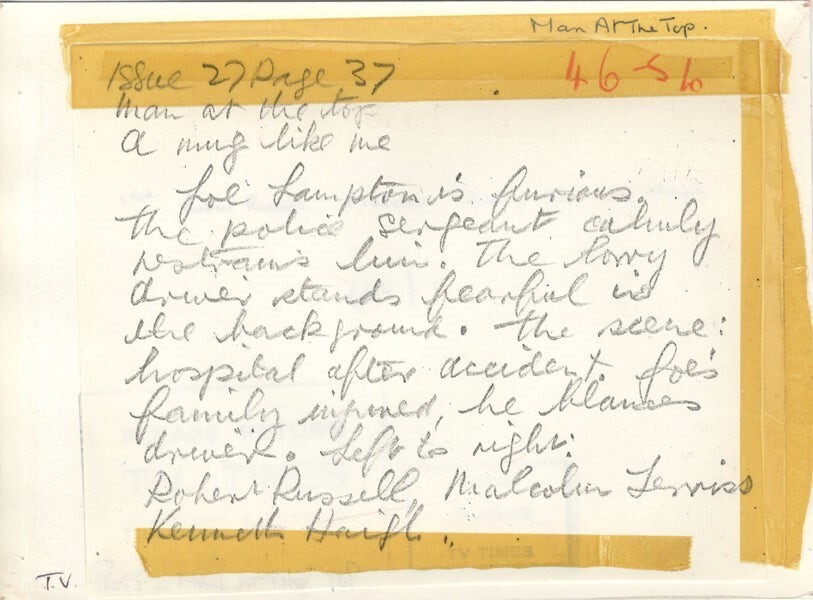 Man At The Top.
Issue 27 Page 37
46-56
Man at the top
A mug like me
Joe Lampton is furious.
The police sergeant calmly
restrains him. The lorry
driver stands fearful in
the background. The scene:
hospital after accident. Joe's
family injured, he blames
driver. Left to right:
Robert Russell, Malcolm Terris
Kenneth Haigh.
TV TIMES
T.V.